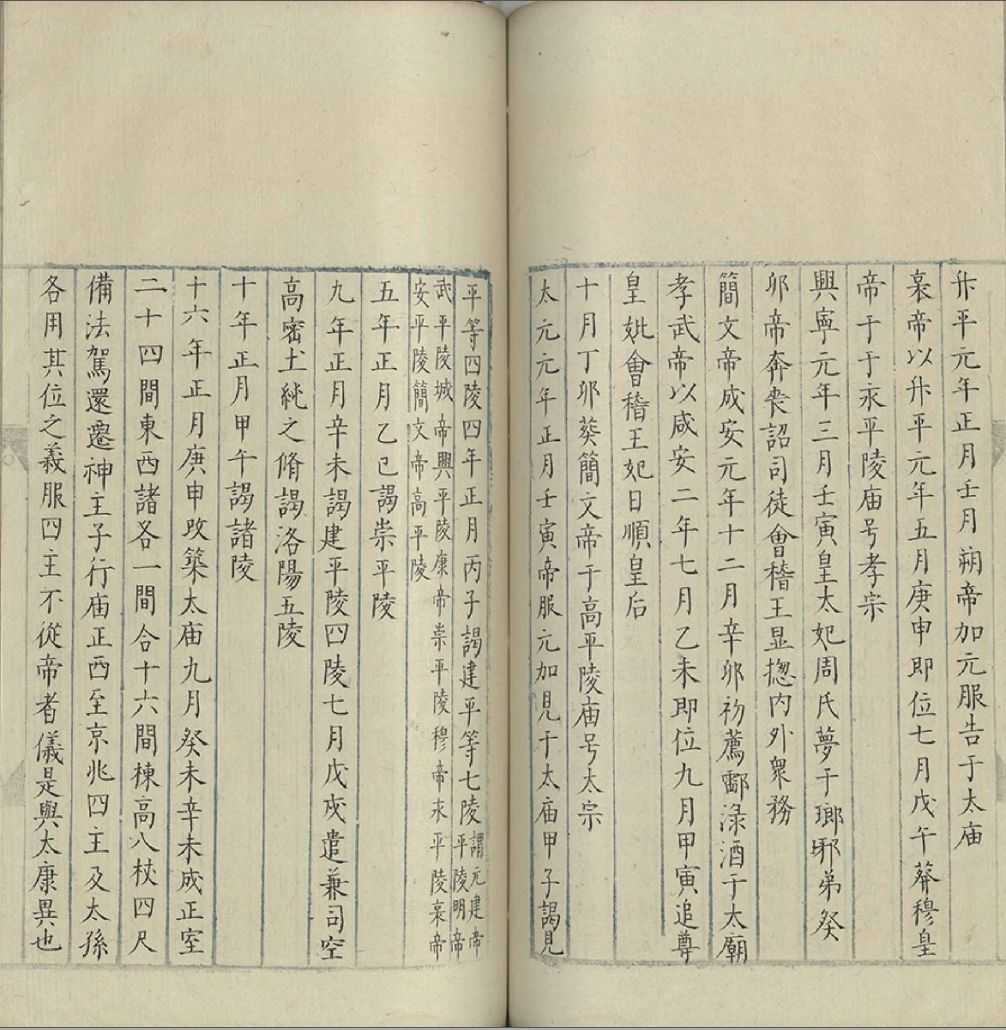 升平元年正月壬月朔帝加元服告于太庙
哀帝以升平元年五月庚申即位七月戊午葬穆皇
帝于于永平陵庙号孝宗
興寧元年三月壬寅皇太妃周氏夢于瑯琊弟癸
卯帝奔丧詔司徒會稽王显揔内外衆務
簡文帝咸安元年十二月辛卯初薦酃渌酒于太廟
孝武帝以咸安二年七月乙未即位九月甲寅追尊
皇妣會稽王妃曰順皇后
十月丁卯葵簡文帝于高平陵庙号太宗
太元元年正月壬寅帝服元加見于太庙甲子謁見
平等四陵四年正月丙子謁建平等七陵謂元建帝
平陵明帝
武平陵城帝興平陵康帝崇平陵穆帝永平陵哀帝
安平陵簡文帝高平陵
五年正月乙巳謁崇平陵
九年正月辛未謁建平陵四陵七月戊戌遣兼司空
高密土純之脩謁洛陽五陵
十年正月甲午謁諸陵
十六年正月庚申改築太庙九月癸未辛未成正室
二十四間東西諸各一間合十六間棟高八杖四尺
備法駕還遷神主子行庙正西至京兆四主及太孫
各用其位之義服四主不從帝者儀是與太康異也